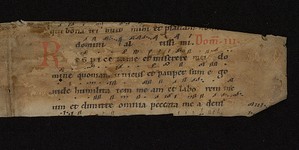 bona tri buit mihi et psallam
domini al tissi mi. Dom. III
Respice in me et miserere mei do
mine quoniam unicus et pauper sum e go
uide humilita tem me am et labo rem me
um et dimitte omnia peccata me a deus